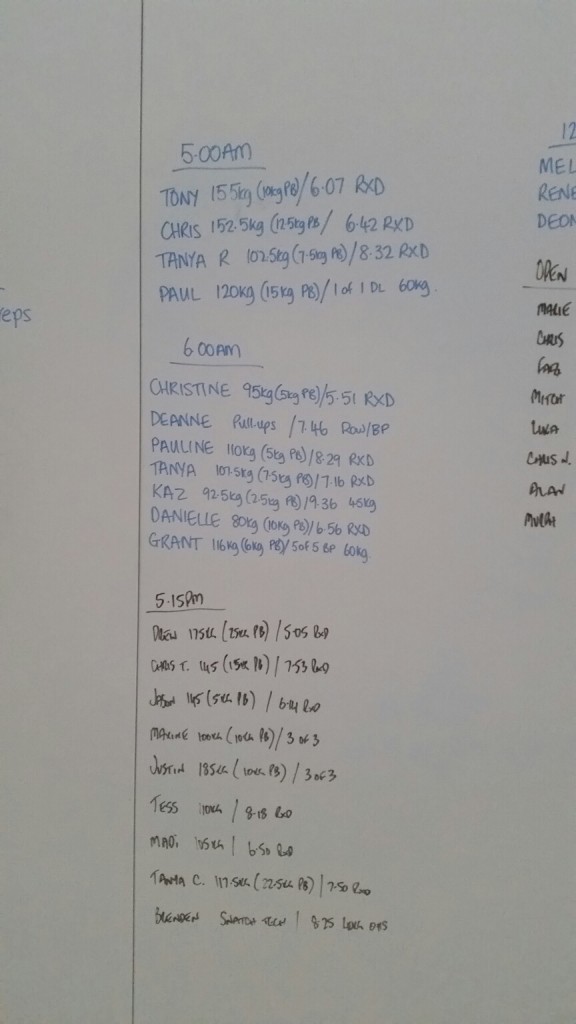 eps
5.00AM
TONY 155kg (10kg PB)/6.07 RXD
CHRIS 152.5kg (12.5kg PB/ 6.42 RXD
TANYA R 102.5kg (7.5kg PB)/8.32 RXD
PAUL 120kg (15kg PB)/1 of 1 DL 60kg.
6.00AM
CHRISTINE 95kg (5kg PB)/5.51 RXD
DEANNE Pull-ups /7.46 Row/BP
PAULINE 110kg (5kg PB)/8.29 RXD
TANYA 107.5kg (7.5kg PB)/7.16 RXD
KAZ 92.5kg (2.5kg PB)/9.36 45kg
DANIELLE 80kg (10kg PB)/6.56 RXD
GRANT 116kg (6kg PB)/5 of 5 BP 60kg
5.15PM
DREW 175KG (25KG PB) / 5.05 RXD
CHRIS T. 145 (15KG PB) / 7.53 RXD
JASON 145 (5KG PB) / 6.14 RXD
MAXINE 100KG (10KG PB) / 3 OF 3
JUSTIN 185KG (10KG PB) / 3 OF 3
TESS 110KG / 8.18 RXD
MADI 105KG | 6.50 RXD
TANYA C. 117.5KG (22.5KG PB) | 7.50 RXD
BRENDEN SNATCH TECH | 8.25
12
MEL
RENE
DEON
OPEN
MARIE
CHRIS
GAB
MITCH
LUKA
CHRIS N.
ALAN
MURPH